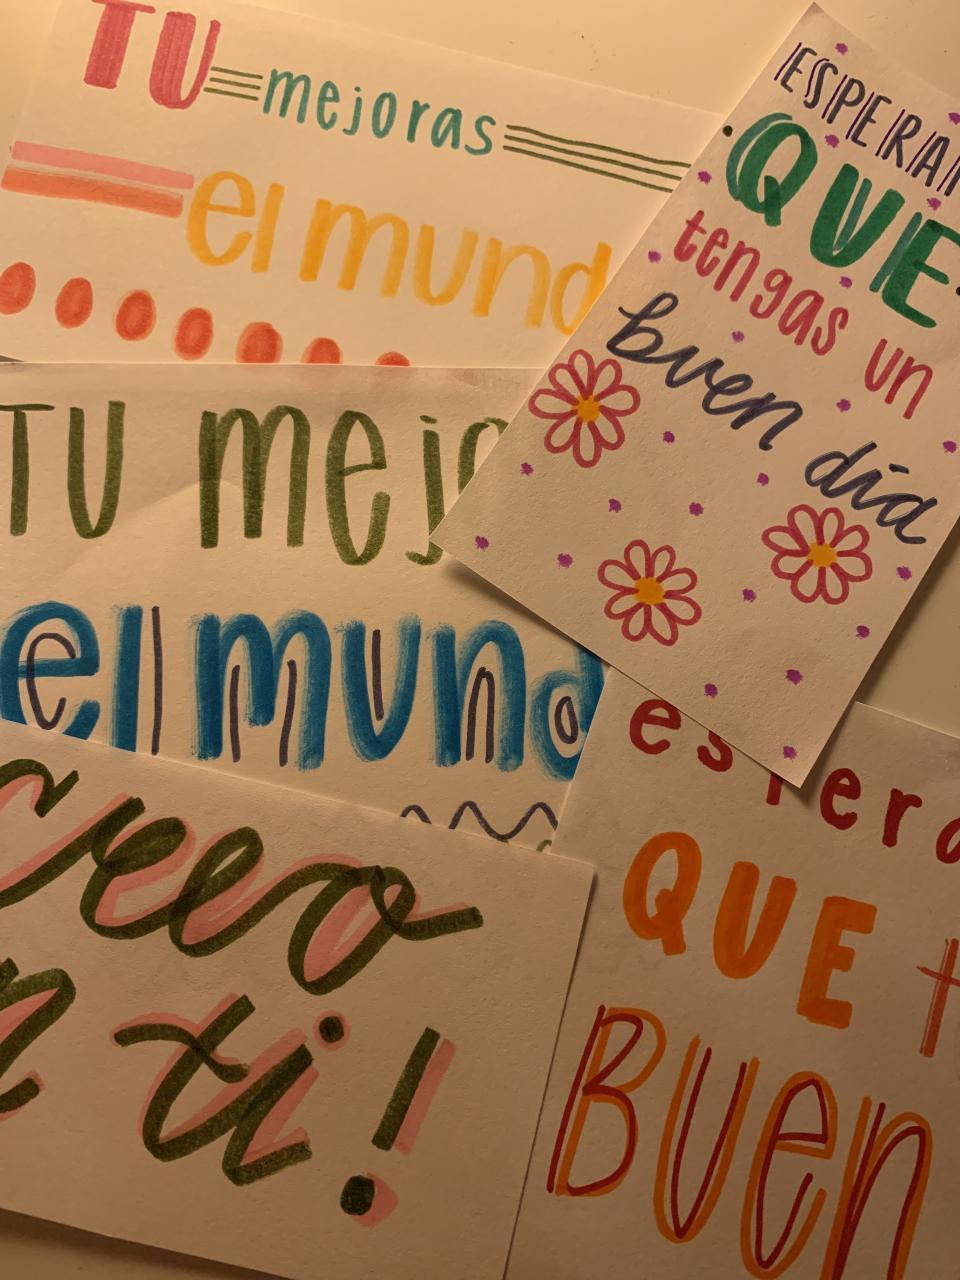 TU mejoras
el mund
ESPERA
QUE
tengas un
buen día
TU mejo
el mund
Creo
n ti!
es era
QUE t
Buen